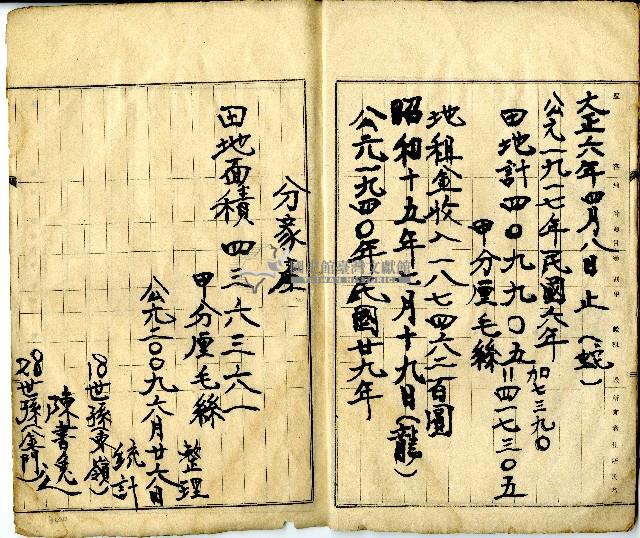 大正六年四月八日止(蛇)
公元一九一七年民國六年
加七三九0
田地計四0九九0五=四一七三0五
甲分厘毛絲
地租金收入一八七四六二百圓
昭和十五年二月十九日(龍)
公元一九四0年民國廿九年
分家產
田地面積四三六三六一
甲分厘毛絲
公元二00九六月廿六日
整理
統計
18世孫東嶺)
陳書兔
28世孫(金門)
國史館臺灣文獻館
TAIWAN HISTORICA